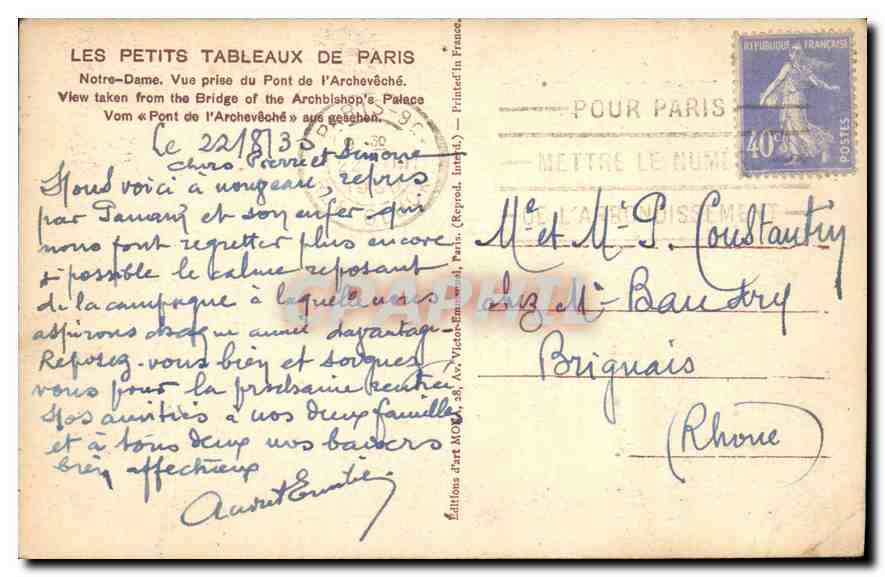 LES PETITS TABLEAUX DE PARIS
Notre-Dame. Vue prise du Pont de l'Archevêché.
View taken from the Bridge of the Archbishop's Palace
Vom « Pont de l'Archevêché » aus gesehen.
Le 22/8/35
Chers Pierre et Simone
Nous voici à nouveau, repris
par Paname et son enfer qui
nous font regretter plus encore
si possible le calme reposant
de la campagne à laquelle nous
aspirons chaque année davantage
Reposez-vous bien et soignez
vous pour la prochaine rentrée
Nos amitiés à vos deux familles
et à tous deux nos baisers
bien affectueux
Editions d'art 28, Av. Victor-Emmanuel, Paris. (Reprod. Interd.) — Printed in France.
REPUBLIQUE FRANÇAISE
40c
POSTES
POUR PARIS
METTRE LE NUMÉ
DE L'ARRONDISSEMENT
Mr et Me P. Constantin
chez Mr Baudry
Brignais
(Rhone)
CPAPHIL